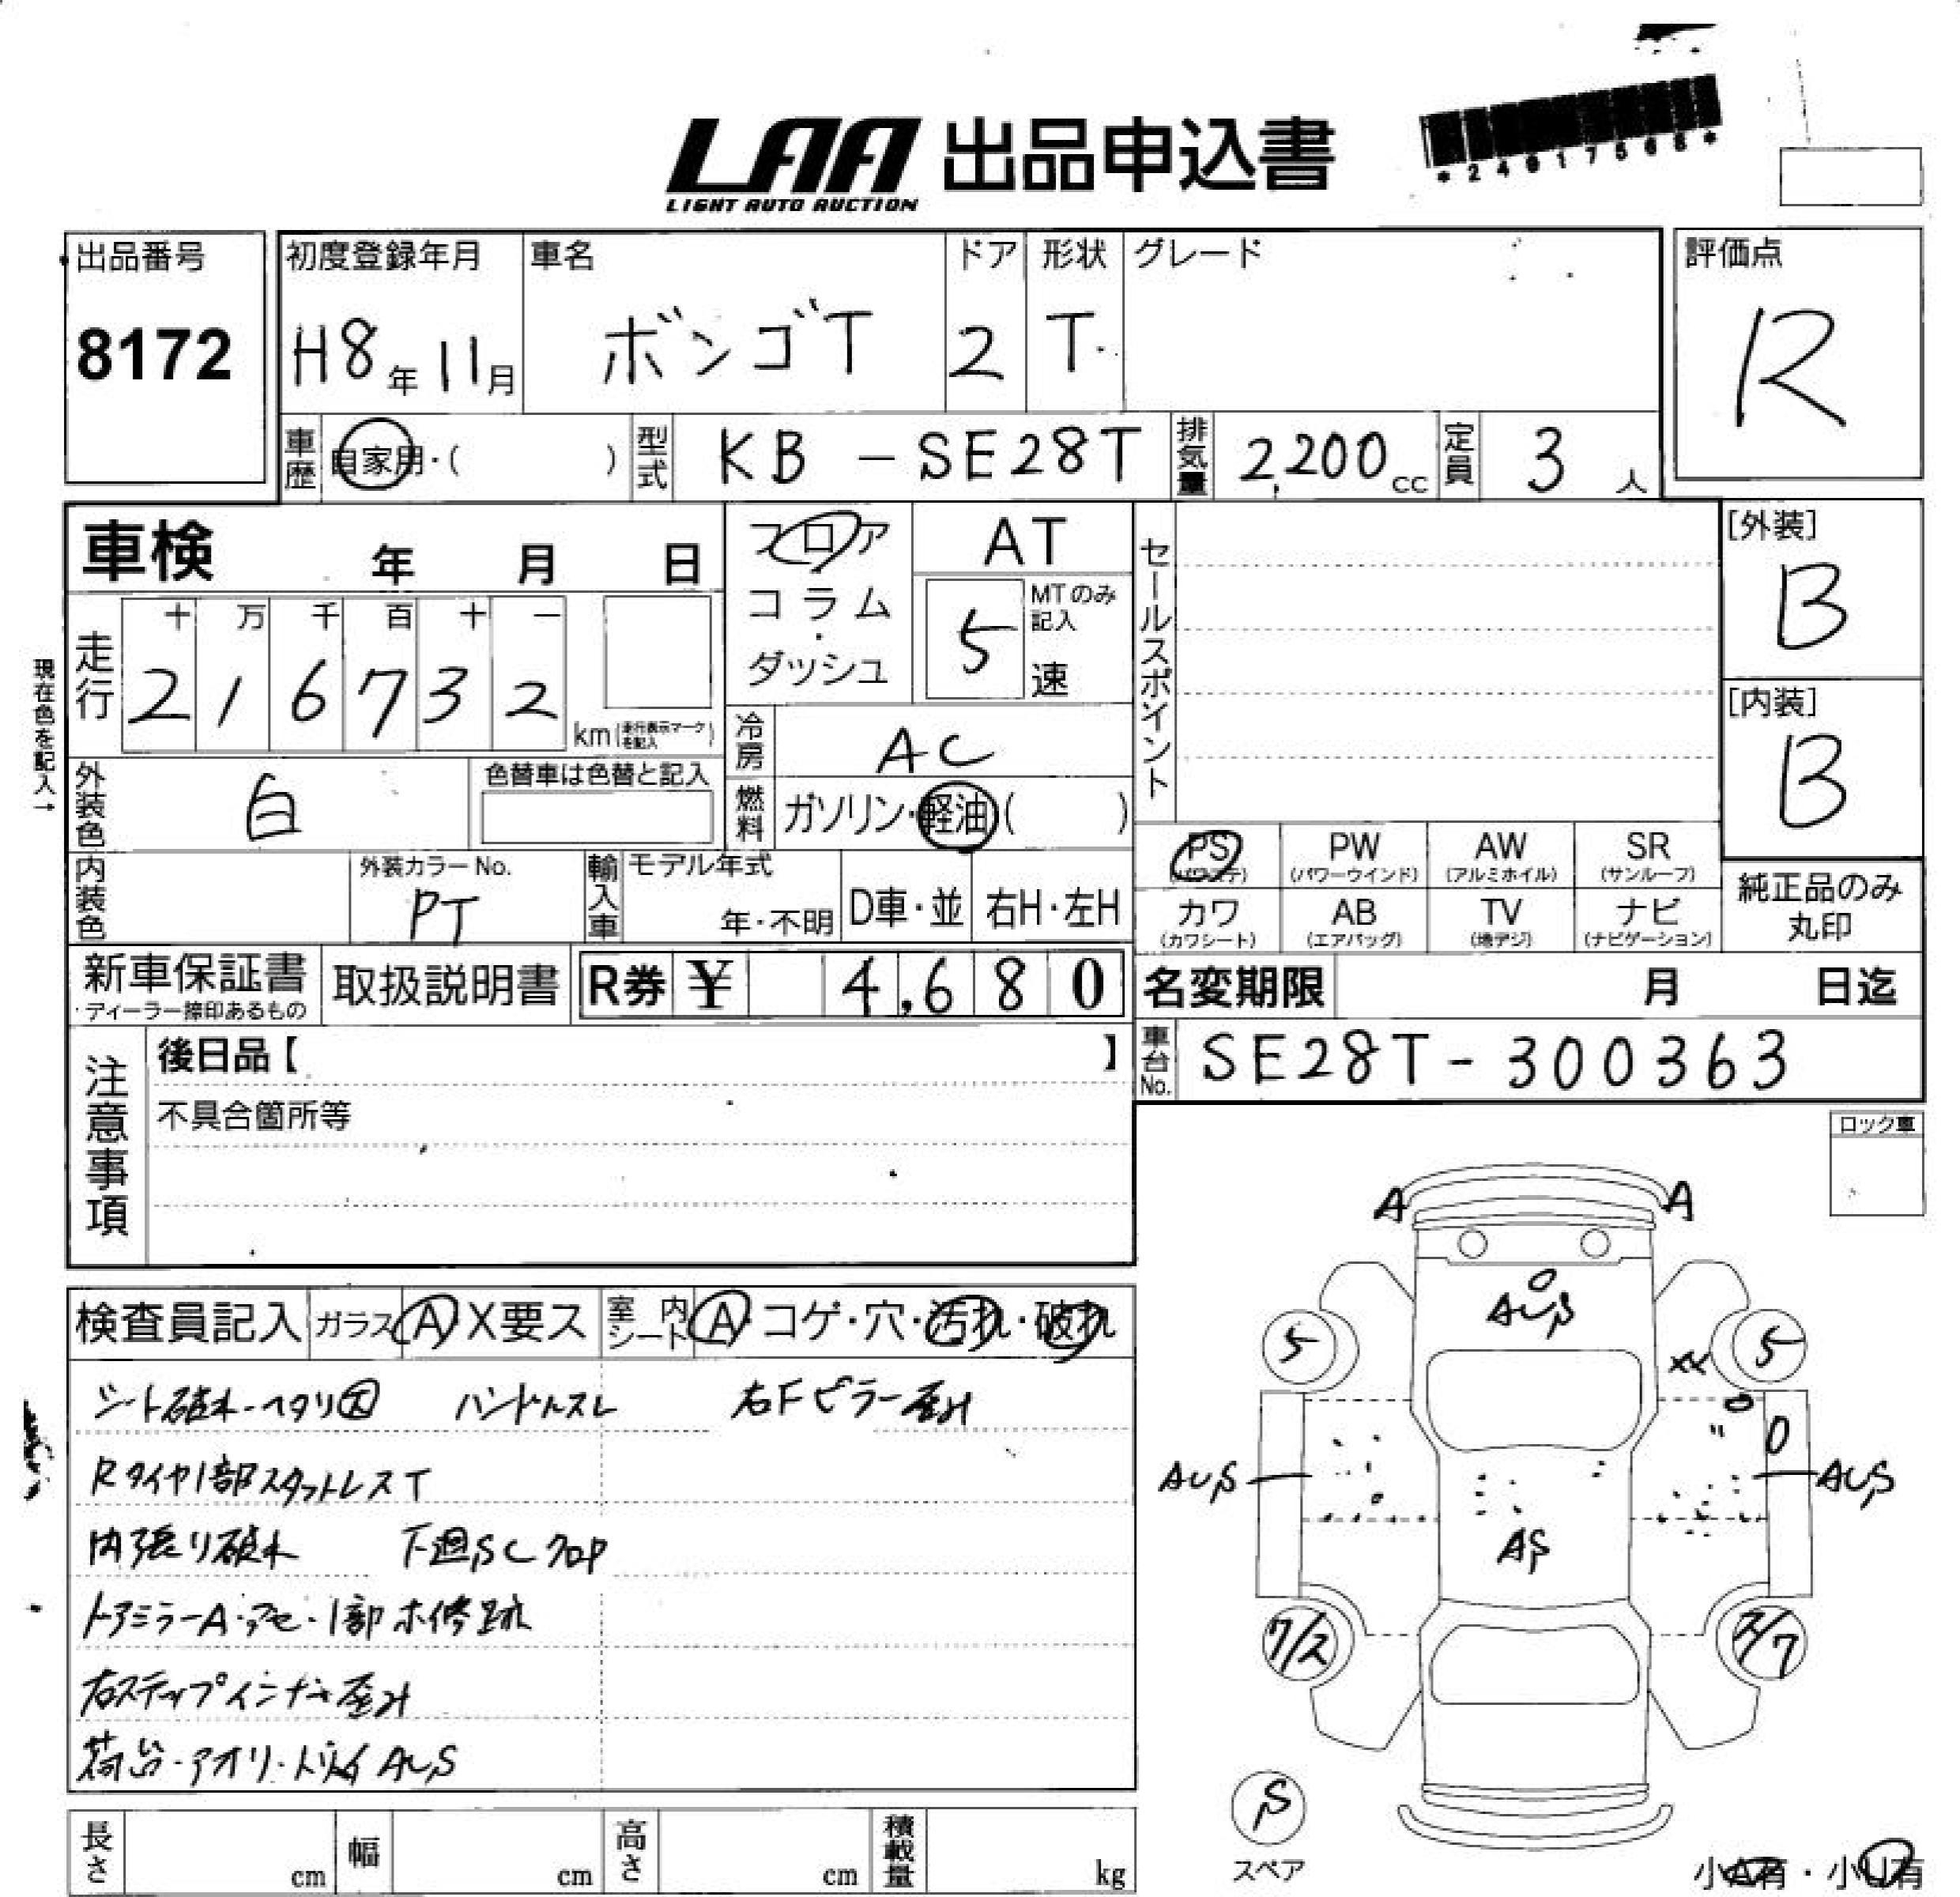 LAA 出品申込書
LIGHT AUTO AUCTION
出品番号 初度登録年月 車名 ドア 形状 グレード 評価点
8172 H8年11月 ボンゴT 2 T R
車歴 自家用・( ) 型式 KB-SE28T 排気量 2,200cc 定員 3人
車検 年 月 日
フロア
コラム
・
ダッシュ
AT
5 MTのみ記入
速
セールスポイント
[外装]
B
[内装]
B
現在色を記入→
走行 十 万 千 百 十 一
2 1 6 7 3 2 km(走行表示マークを記入)
冷房 AC
外装色 白 色替車は色替と記入
燃料 ガソリン・軽油( )
内装色 外装カラーNo. PT
輸入車 モデル年式 年・不明 D車・並 右H・左H
PS (パワステ) PW (パワーウインド) AW (アルミホイル) SR (サンルーフ)
カワ (カワシート) AB (エアバッグ) TV (地デジ) ナビ (ナビゲーション)
純正品のみ
丸印
新車保証書 取扱説明書 R券 ¥ 4,680 名変期限 月 日迄
車台No. SE28T-300363
注意事項
後日品【 】
不具合箇所等
ロック車
検査員記入 ガラス A X要ス 室内シート A・コゲ・穴・汚れ・破れ
シート破れ・ヘタリ大 ハンドルスレ 右Fピラー歪み
Rタイヤ1部スタットレスT
内張り破れ 下廻SC
ドアミラーA・アセ・1部ホ修跡
右ステップインナー歪み
荷台・アオリ・トリイAUS
A A
AUS
5 5
XX
AUS AUS
AS
7/ス ス/7
S
スペア
小A有・小U有
長さ cm 幅 cm 高さ cm 積載量 kg